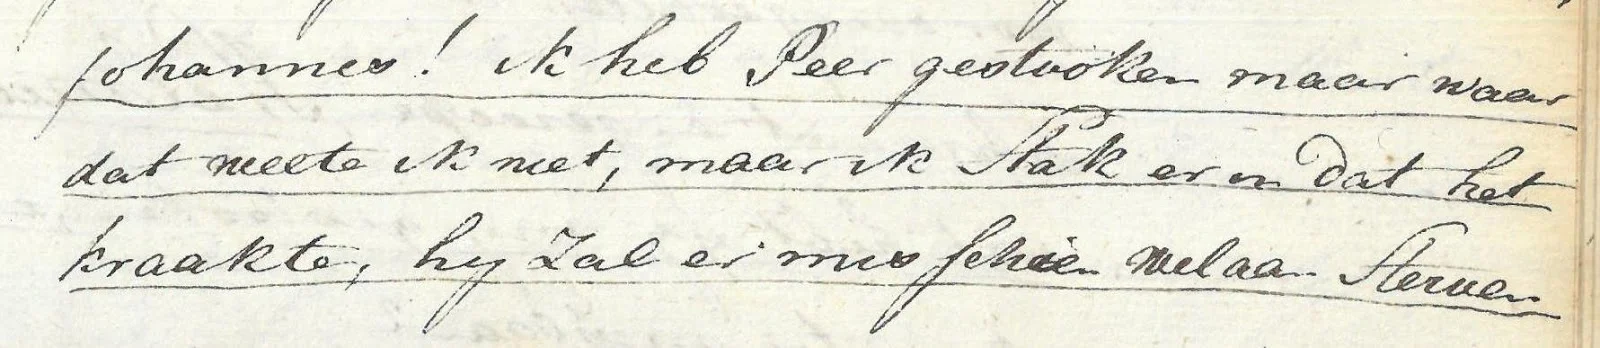 Johannes! ik heb Peer gestooken maar waar
dat weete ik niet, maar ik Stak er in dat het
kraakte, hy Zal er mis schien wel aan Sterven